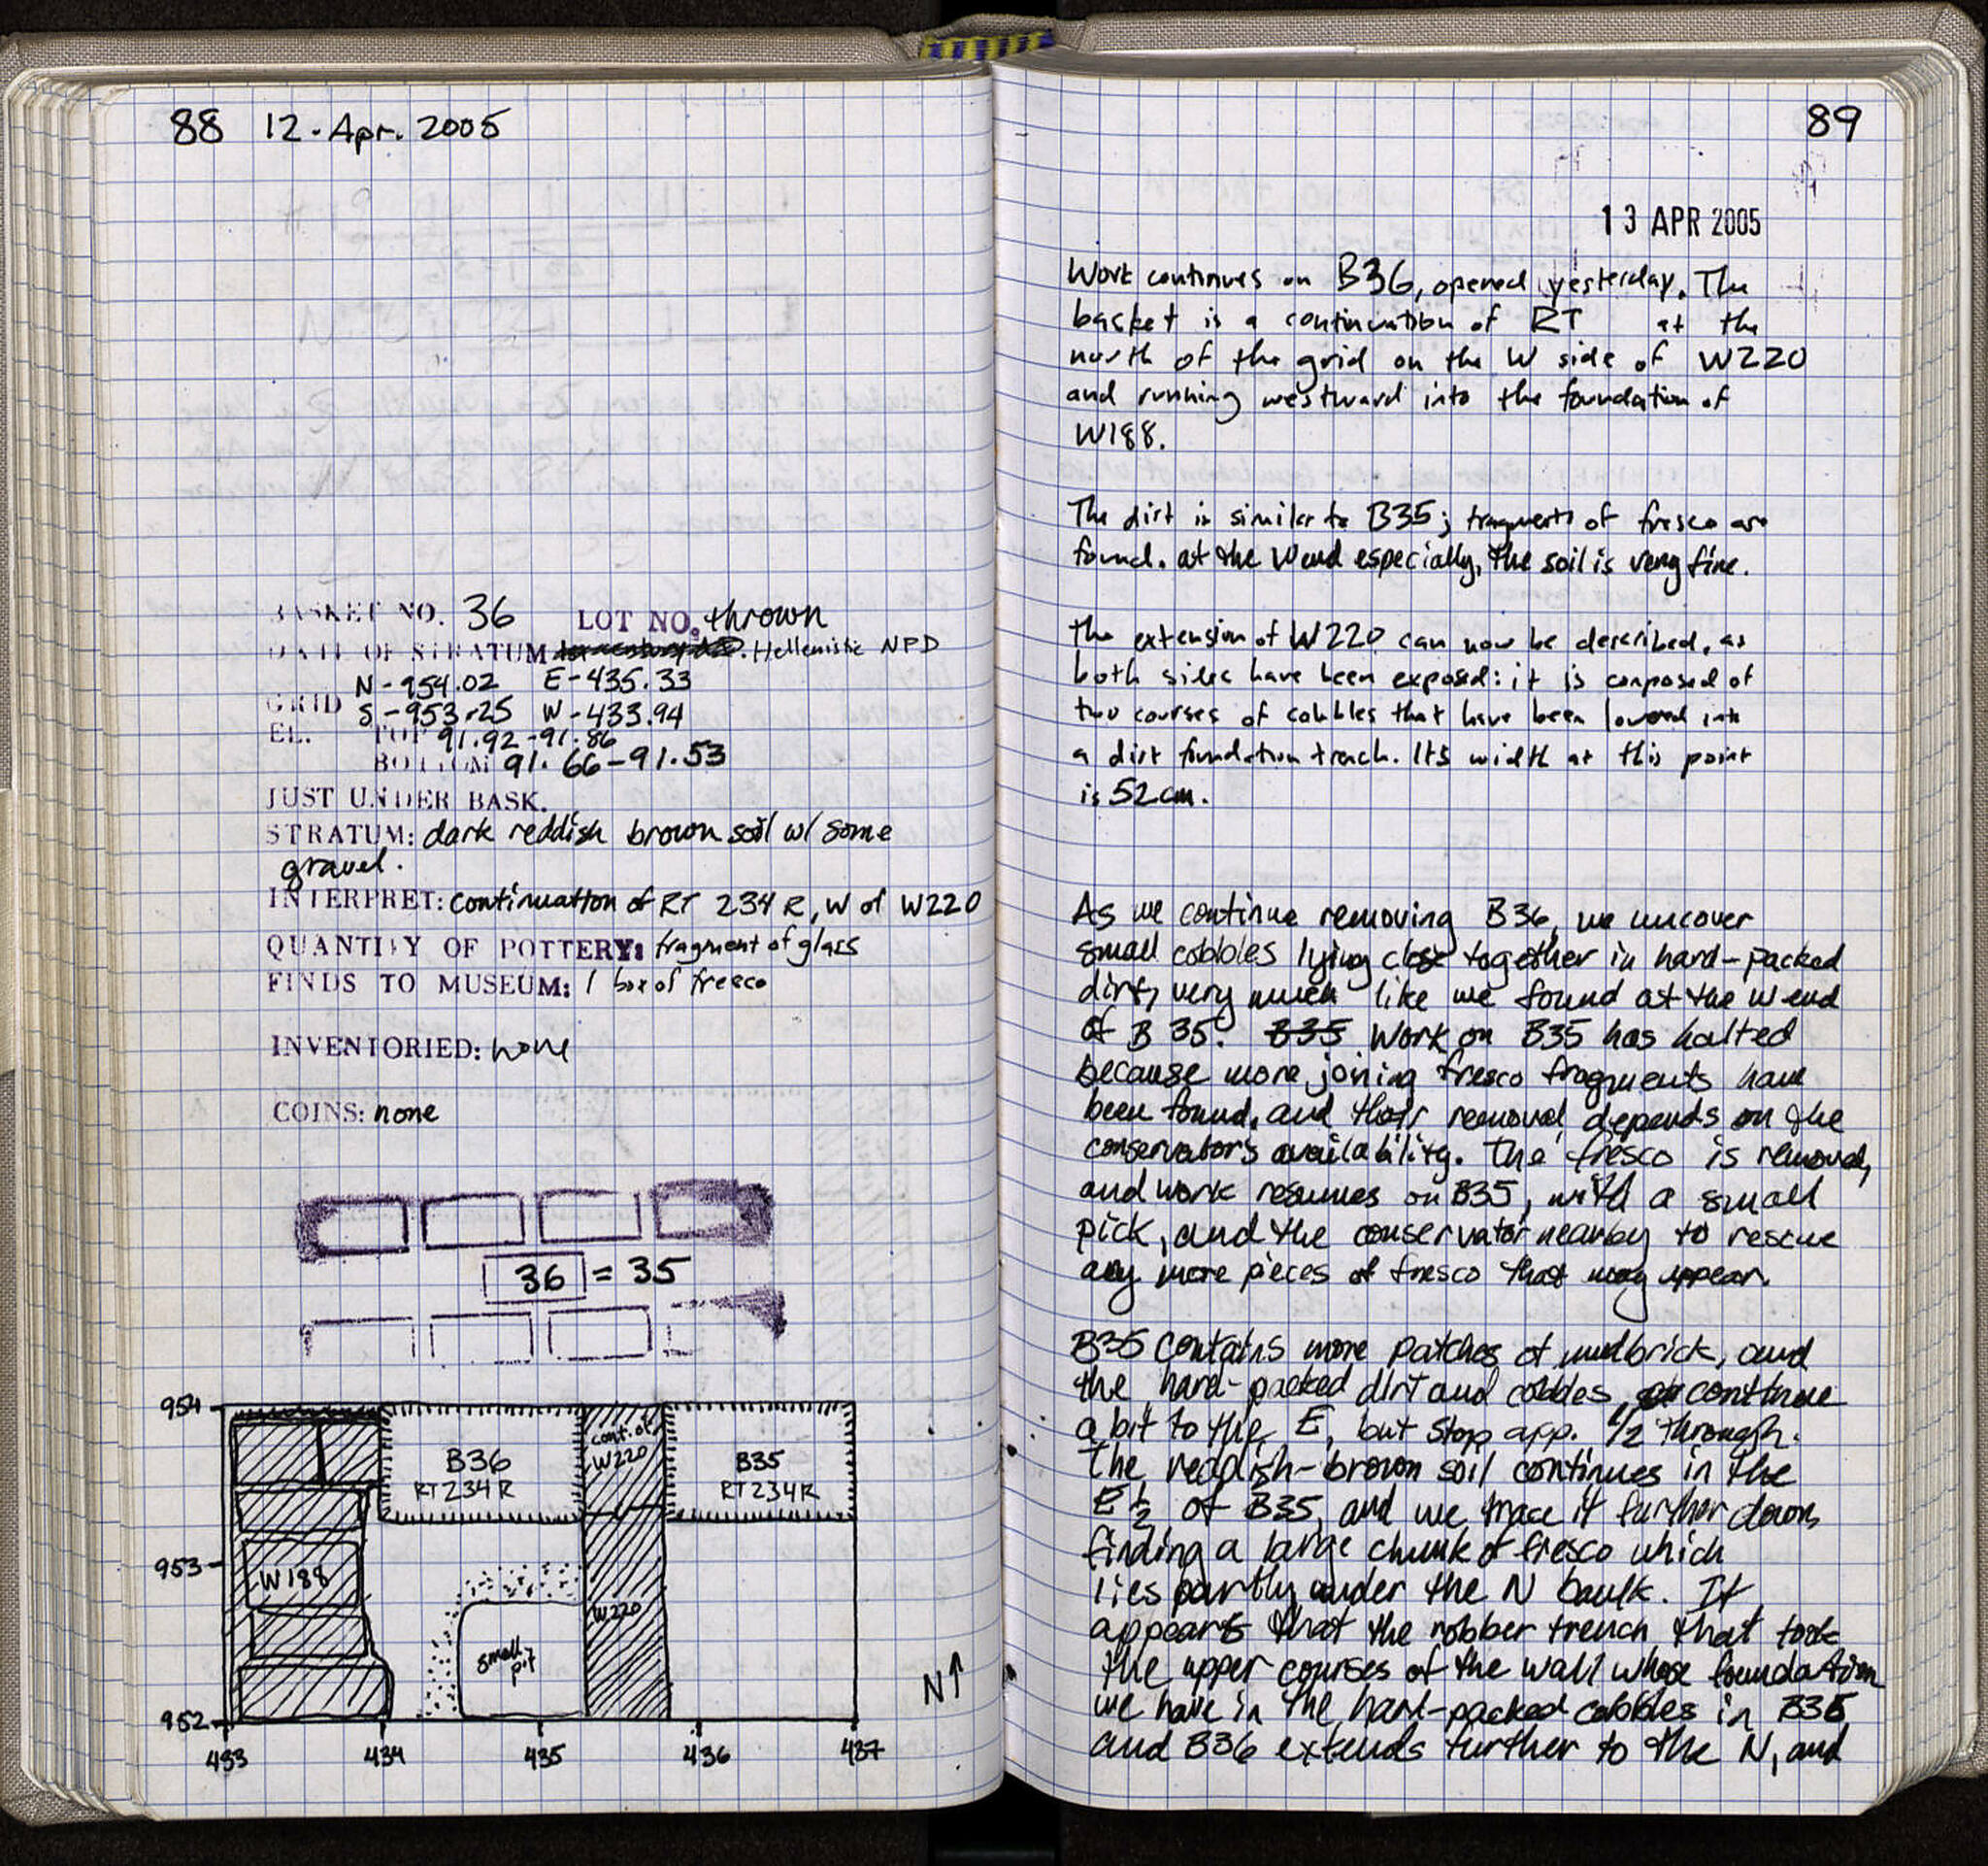 88 12. Apr. 2005
BASKET NO. 36 LOT NO. thrown
DATE OF STRATUM Hellenistic NPD
GRID N-954.02 E-435.33
S-953.25 W-433.94
EL. TOP 91.92-91.86
BOTTOM 91.66-91.53
JUST UNDER BASK.
STRATUM: dark reddish brown soil w/ some
gravel.
INTERPRET: continuation of RT 234 R, W of W220
QUANTITY OF POTTERY: fragment of glass
FINDS TO MUSEUM: 1 box of fresco
INVENTORIED: none
COINS: none
36 = 35
954
B36
RT234R
cont. of
W220
B35
RT234R
953
W188
W220
small
pit
N↑
952
433 434 435 436 437
89
13 APR 2005
Work continues on B36, opened yesterday. The
basket is a continuation of RT at the
north of the grid on the W side of W220
and running westward into the foundation of
W188.
The dirt is similar to B35; fragments of fresco are
found. at the W end especially, the soil is very fine.
The extension of W220 can now be described, as
both sides have been exposed: it is composed of
two courses of cobbles that have been lowered into
a dirt foundation trench. Its width at this point
is 52cm.
As we continue removing B36, we uncover
small cobbles lying close together in hard-packed
dirt, very much like we found at the W end
of B 35. B35 Work on B35 has halted
because more joining fresco fragments have
been found, and their removal depends on the
conservator's availability. The fresco is removed,
and work resumes on B35, with a small
pick, and the conservator nearby to rescue
any more pieces of fresco that may appear.
B35 contains more patches of mudbrick, and
the hard-packed dirt and cobbles continue
a bit to the E, but stop app. 1/2 through.
The reddish-brown soil continues in the
E 1/2 of B35, and we trace it further down,
finding a large chunk of fresco which
lies partly under the N baulk. It
appears that the robber trench that took
the upper courses of the wall whose foundation
we have in the hard-packed cobbles in B35
and B36 extends further to the N, and